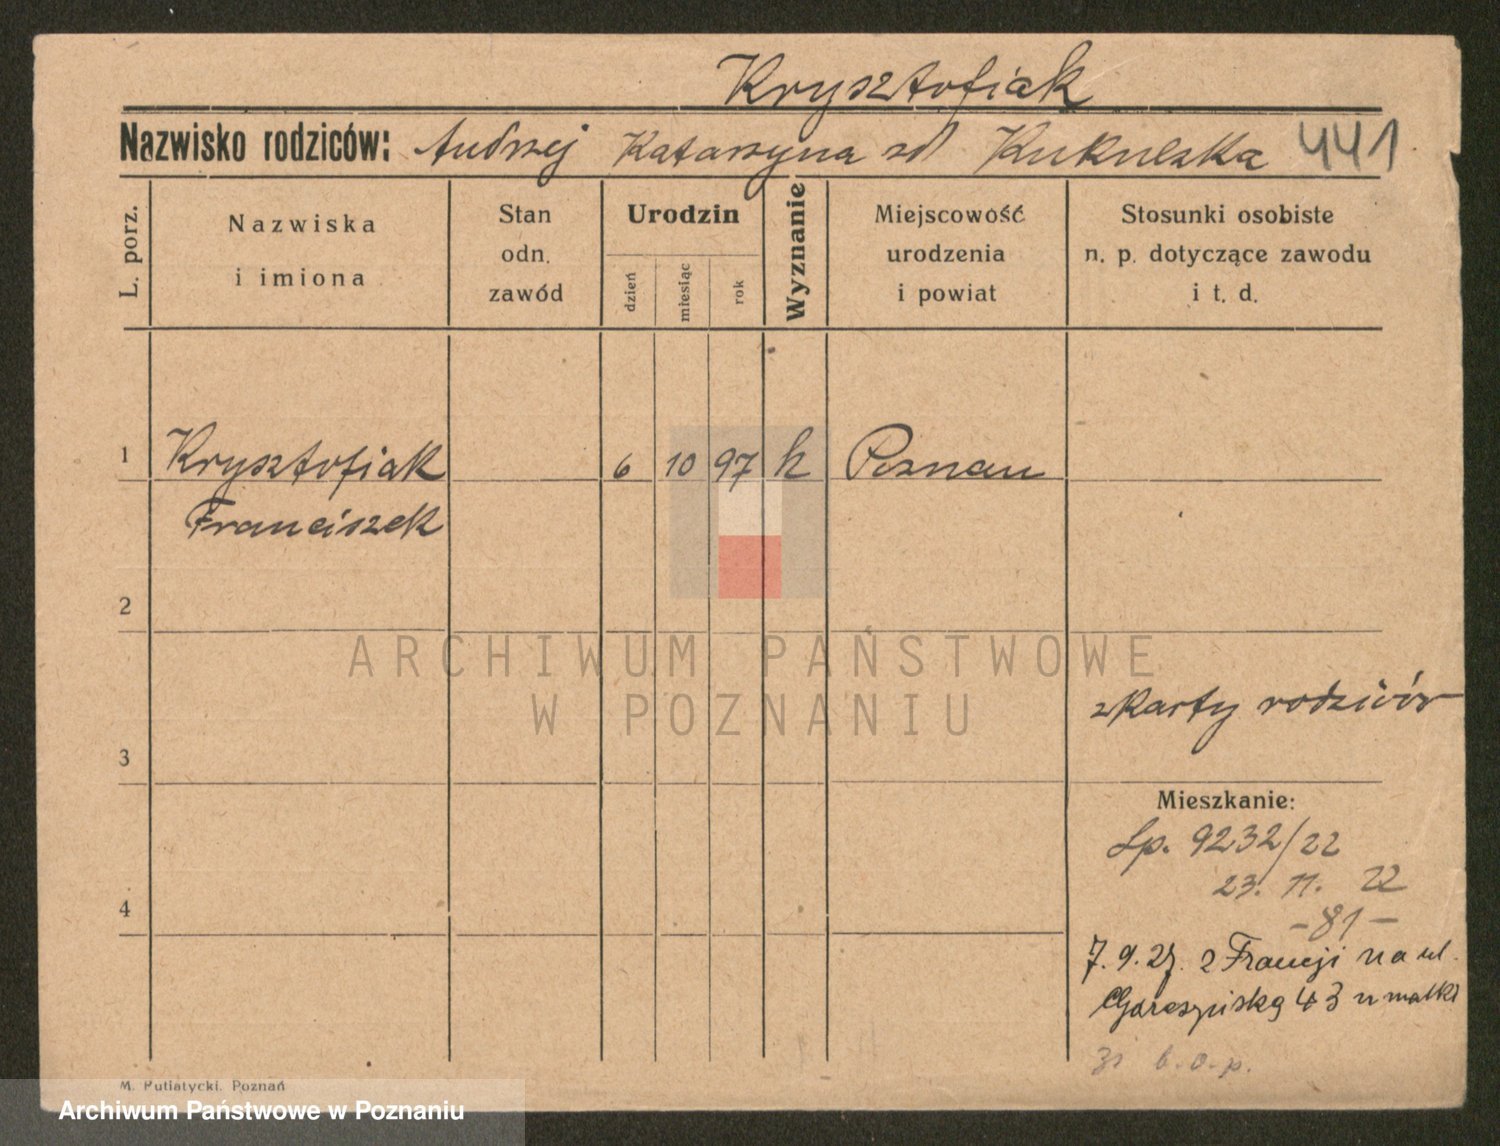 Krysztofiak
Nazwisko rodziców: Andrzej Katarzyna zd Kukulska 441
L. porz.
Nazwiska
i imiona
Stan
odn.
zawód
Urodzin
dzień
miesiąc
rok
Wyznanie
Miejscowość
urodzenia
i powiat
Stosunki osobiste
n. p. dotyczące zawodu
i t. d.
1 Krysztofiak 6 10 97 k Poznan
Franciszek
2
ARCHIWUM PAŃSTWOWE
W POZNANIU
z karty rodziców
3
Mieszkanie:
Lp. 9232/22
23. 11. 22
4
-81-
7. 9. 27. z Francji na ul.
43 u matki
b. o. p.
M. Putiatycki. Poznań
Archiwum Państwowe w Poznaniu